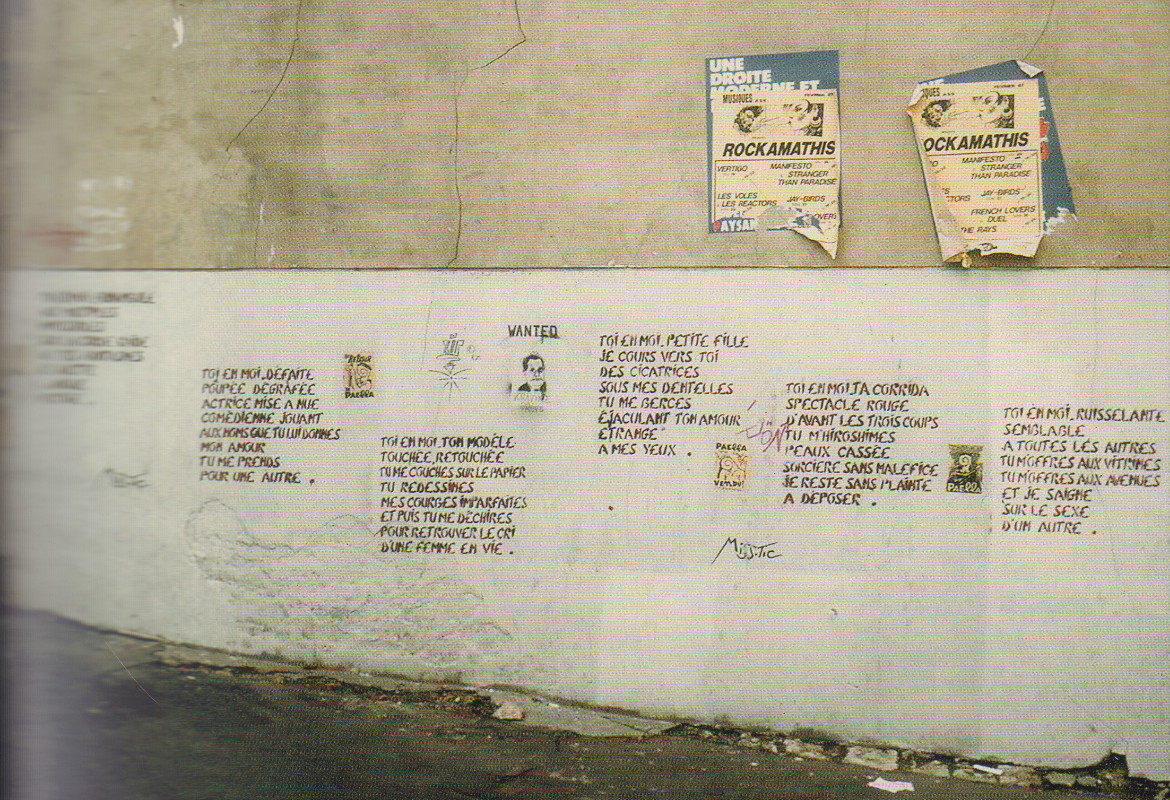 UNE
DROITE
MODERNE ET
MUSIQUES...
FEVRIER 87
ROCKAMATHIS
VERTIGO
MANIFESTO
STRANGER
THAN PARADISE
LES VOLES
LES REACTORS
JAY-BIRDS
OVERS
PAYSAN
QUES...
FEVRIER 87
OCKAMATHIS
MANIFESTO
STRANGER
THAN PARADISE
TORS
JAY-BIRDS
FRENCH LOVERS
DUEL
THE RAYS
TOI EN MOI, DÉFAITE
POUPÉE DÉGRAFÉE
ACTRICE MISE A NUE
COMÉDIENNE JOUANT
AUX NOMS QUE TU LUI DONNES
MON AMOUR
TU ME PRENDS
POUR UNE AUTRE .
PAELLA
ZIP
WANTED
TOI EN MOI, TON MODÈLE
TOUCHÉE, RETOUCHÉE
TU ME COUCHES SUR LE PAPIER
TU REDESSINES
MES COURBES IMPARFAITES
ET PUIS TU ME DÉCHIRES
POUR RETROUVER LE CRI
D'UNE FEMME EN VIE .
TOI EN MOI, PETITE FILLE
JE COURS VERS TOI
DES CICATRICES
SOUS MES DENTELLES
TU ME GERCES
ÉJACULANT TON AMOUR
ÉTRANGE
A MES YEUX .
PAELLA
MISS.TIC
TOI EN MOI, TA CORRIDA
SPECTACLE ROUGE
D'AVANT LES TROIS COUPS
TU M'HIROSHIMES
PEAUX CASSÉE
SORCIÈRE SANS MALÉFICE
JE RESTE SANS PLAINTE
A DÉPOSER .
PAELLA
TOI EN MOI, RUISSELANTE
SEMBLABLE
A TOUTES LES AUTRES
TU M'OFFRES AUX VITRINES
TU M'OFFRES AUX AVENUES
ET JE SAIGNE
SUR LE SEXE
D'UN AUTRE .